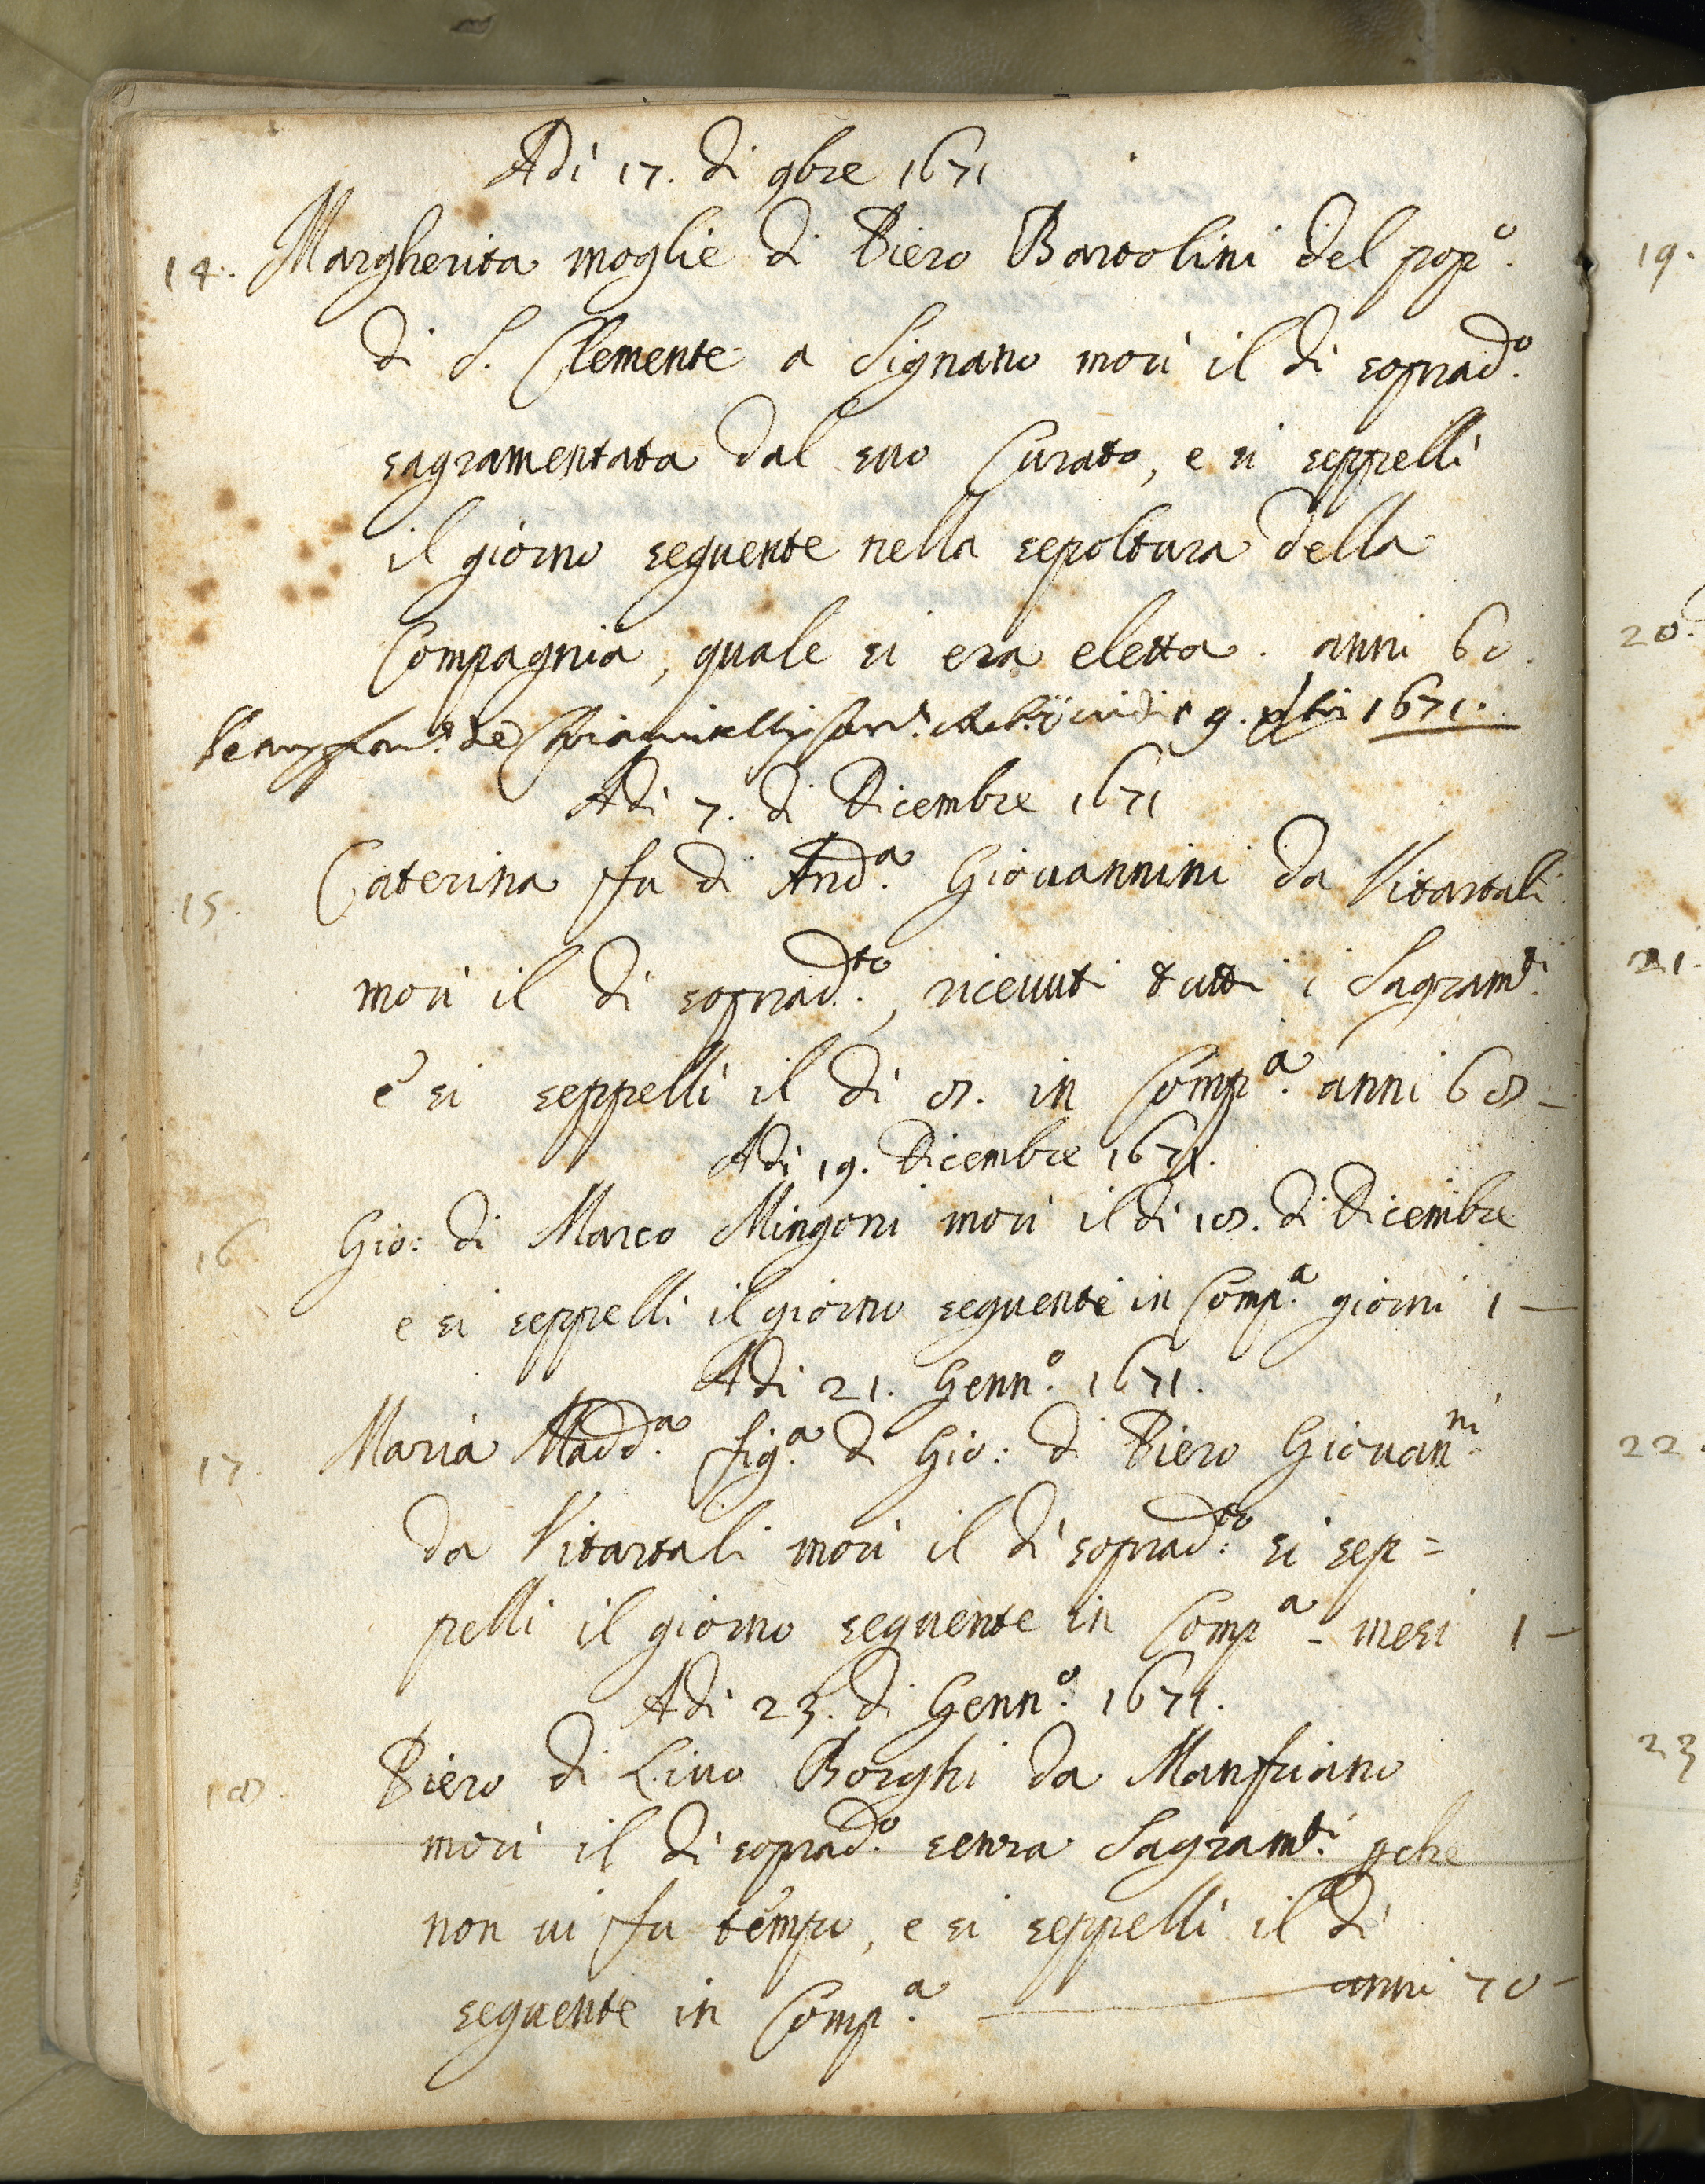 Adi 17. di 9bre 1671
14. Margherita moglie di Piero Bartolini del popº.
di S. Clemente a Signano morì il dì sopradº.
sagramentata dal suo Curato, e si seppellì
il giorno seguente nella sepoltura della
Compagnia, quale si era eletta. anni 60.
9. xbri 1671.
Adi 7. di Dicembre 1671
15. Caterina fu di Andª. Giovannini da Vitartali
morì il dì sopradto., ricevuti tutti i Sagramti.
e si seppellì il dì 8. in Compª. anni 68 -
Adi 19. Dicembre 1671.
16. Gio: di Marco Mingoni morì il dì 18. di Dicembre
e si seppellì il giorno seguente in Compª. giorni 1 -
Adi 21. Gennº. 1671.
17. Maria Maddª. figª. di Gio: di Piero Giovanni.
da Vitartali morì il dì sopradto: si sep=
pellì il giorno seguente in Compª - mesi 1 -
Adi 23. di Gennº. 1671.
18. Piero di Livo Borghi da Manfriano
morì il dì sopradº. senza Sagramti. pche
non vi fu tempo, e si seppellì il dì
seguente in Compª. - anni 70 -
19.
20.
21.
22.
23